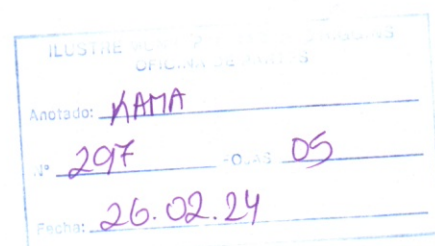 ILUSTRE
OFICINA DE PARTES
Anotado: KAMA
N° 297 HOJAS 05
Fecha: 26.02.24